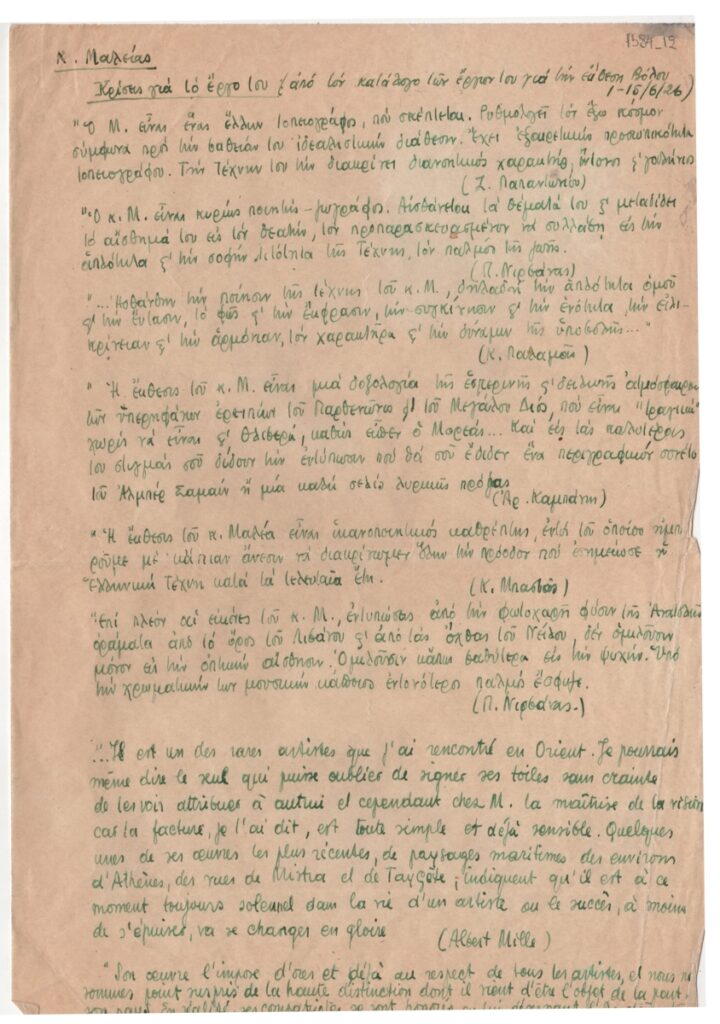 1584_19
Κ. Μαλέας
Κρίσεις για το έργο του (από τον κατάλογο των έργων του για την έκθεση Βόλου
1-15/6/26)
"Ὁ Μ. εἶναι ἕνας ἕλλην τοπειογράφος, πού σκέπτεται. Ρυθμολογεῖ τόν ἔξω κόσμον
σύμφωνα πρός τήν βαθεῖαν του ἰδεαλιστικήν διάθεσιν. Ἔχει ἐξαιρετικήν προσωπικότητα
τοπειογράφου. Τήν Τέχνην του τήν διακρίνει διανοητικός χαρακτήρ, ἔντονος ς' γαλήνιος
(Ζ. Παπαντωνίου)
"Ὁ κ. Μ. εἶναι κυρίως ποιητής - ζωγράφος. Αἰσθάνεται τά θέματά του ς' μεταδίδει
τό αἴσθημά του εἰς τόν θεατήν, τόν προπαρασκευασμένον νά συλλάβῃ εἰς τήν
ἁπλότητα ς' τήν σοφήν λιτότητα τῆς Τέχνης, τόν παλμόν τῆς ζωῆς.
(Π. Νιρβάνας)
"... Ἠσθάνθην τήν ποίησιν τῆς τέχνης τοῦ κ. Μ., δηλαδή τήν ἁπλότητα ὁμοῦ
ς' τήν ἔντασιν, τό φῶς ς' τήν ἔκφρασιν, τήν συγκίνησιν ς' τήν ἑνότητα, τήν εἰλι-
κρίνειαν ς' τήν ἁρμονίαν, τόν χαρακτῆρα ς' τήν δύναμιν τῆς ὑποβολῆς..."
(Κ. Παλαμᾶς)
"Ἡ ἔκθεσις τοῦ κ. Μ. εἶναι μιά δοξολογία τῆς ἑσπερινῆς ς' δειλινῆς ἀτμόσφαιρας
τῶν ὑπερηφάνων ἐρειπίων τοῦ Παρθενῶνος ς' τοῦ Μεγάλου Διός, πού εἶναι "τραγικά"
χωρίς νά εἶναι ς' θλιβερά, καθώς εἶδεν ὁ Μορεάς... Καί εἰς τάς καλυτέρας
του στιγμάς σοῦ δίδουν τήν ἐντύπωσιν πού θά σοῦ ἔδιδεν ἕνα περιγραφικόν σονέτο
τοῦ Ἀλμπέρ Σαμαίν ἤ μία καλή σελίς λυρικῆς πρόζας
(Ἀρ. Καμπάνης)
"Ἡ ἔκθεσις τοῦ κ. Μαλέα εἶναι ἱκανοποιητικός καθρέπτης, ἐντός τοῦ ὁποίου ἠμπο-
ροῦμε μέ κάποιαν ἄνεσιν νά διακρίνωμεν ὅλην τήν πρόοδον πού ἐσημείωσε ἡ
Ἑλληνική Τέχνη κατά τά τελευταῖα ἔτη.
(Κ. Μπαστιάς)
"Ἐπί πλέον αἱ εἰκόνες τοῦ κ. Μ., ἐντυπώσεις ἀπό τήν φωτοχαρῆ φύσιν τῆς Ἀνατολῆς
ὁράματα ἀπό τό ὄρος τοῦ Λιβάνου ς' ἀπό τάς ὄχθας τοῦ Νείλου, δέν ὁμιλοῦσιν
μόνον εἰς τήν ὀπτικήν αἴσθησιν. Ὁμιλοῦσιν κάπως βαθύτερα εἰς τήν ψυχήν. Ὑπό
τήν χρωματικήν των μουσικήν κάποιος ἐντονότερος παλμός ἔσφυζε.
(Π. Νιρβάνας.)
"...Il est un des rares artistes que j'ai rencontré en Orient. Je pourrais
même dire le seul qui puisse oublier de signer ses toiles sans crainte
de les voir attribuer à autrui et cependant chez M. la maîtrise de la vision
car la facture, je l'ai dit, est toute simple et déjà sensible. Quelques
unes de ses œuvres les plus récentes, de paysages maritimes des environs
d'Athènes, des vues de Mistra et de Taygète; indiquent qu'il est à ce
moment toujours solennel dans la vie d'un artiste ou le succès, à moins
de s'épuiser, va se changer en gloire
(Albert Mille)
"Son œuvre l'impose d'ores et déjà au respect de tous les artistes, et nous ne
sommes point surpris de la haute distinction dont il vient d'être l'objet de la part